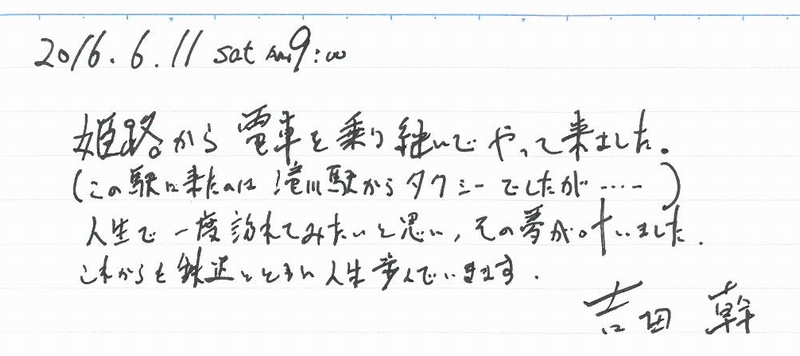 2016.6.11 sat am9:00
姫路から電車を乗り継いでやって来ました。
(この駅に来たのは滝川駅からタクシーでしたが‥‥)
人生で一度訪れてみたいと思い、その夢が叶いました.
これからも鉄道とともに人生歩んでいきます.
吉田 幹